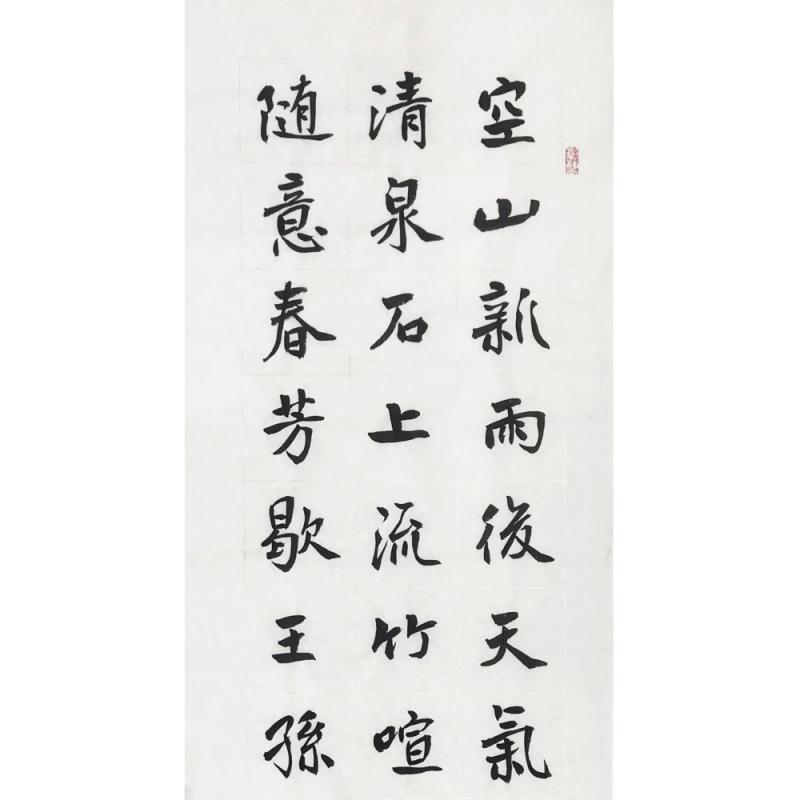 空山新雨後天氣
清泉石上流竹喧
随意春芳歇王孫